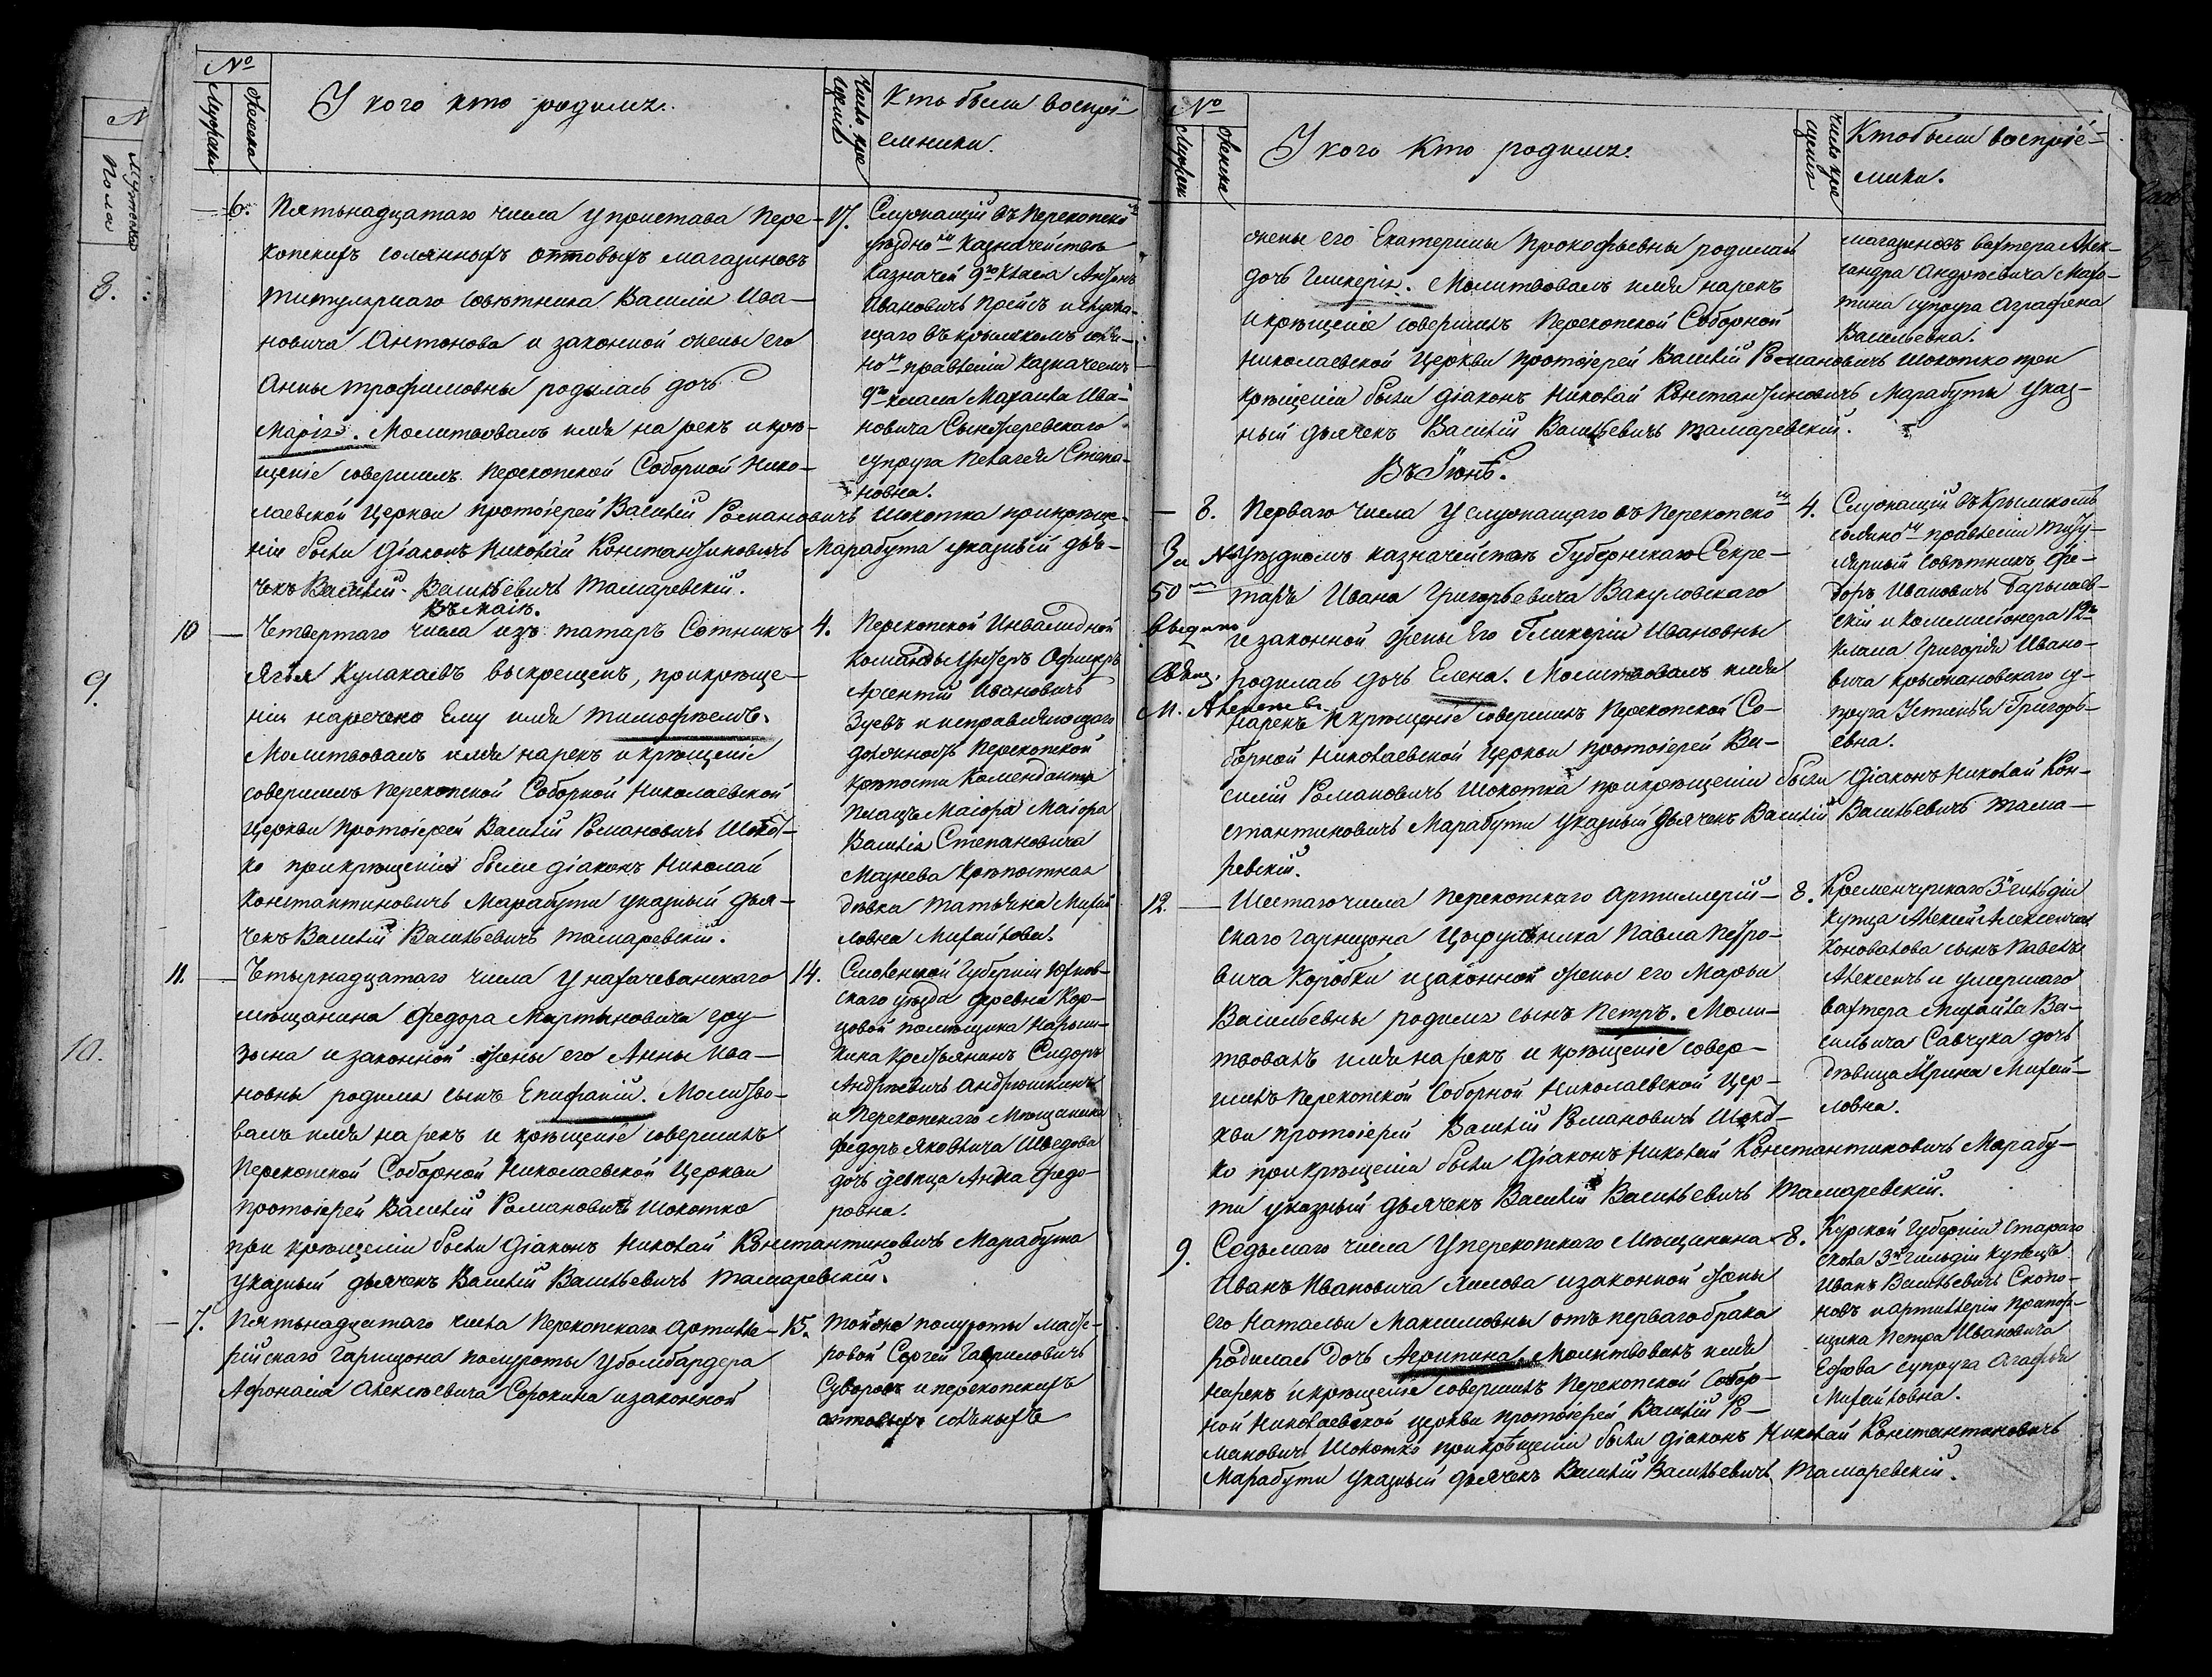 №
Мужеска
Женска
У кого кто родился.
Число кре
щенія
Кто были воспрі
емники.
6. Пятьнадцатаго числа у пристава Пере-
копскихъ соляныхъ оптовыхъ магазиновъ
титулярнаго совѣтника Василія Ива-
новича Антонова и законной жены его
Анны Трофимовны родилась дочь
Марія. Молитвовалъ имя нарекъ и крѣ-
щеніе совершилъ Перекопской Соборной Нико-
лаевской Церкви протоіерей Василій Романовичъ Шокотка прикрѣще-
ніи были діаконъ Николай Константиновичъ Марабута указный дья-
чекъ Василій Васильевичъ Тамаревскій.
17.
Служащій въ Перекопско
уѣздно казначействѣ
казначей 9го класа Антонъ
Ивановичъ Прейсъ и служа-
щаго въ крымскомъ соля-
но правленіи казначеемъ
9го класа Михаила Ива-
новича
супруга Пелагея Степа-
новна.
Въ маіѣ.
10 Четвертаго числа изъ татаръ Сотникъ
Ягья Кулакаевъ выкрещенъ, прикрѣще-
ніи наречено ему имя Тимофѣемъ.
Молитвовалъ имя нарекъ и крѣщеніе
совершилъ Перекопской Соборной Николаевской
Церкви протоіерей Василій Романовичъ Шокот-
ко прикрѣщеніи были діаконъ Николай
Константиновичъ Марабути указный дья-
чекъ Василій Васильевичъ Тамаревскій.
4.
Перекопской Инвалидной
команды Унтеръ Офицеръ
Арсентій Ивановичъ
Зуевъ и исправляющаго
должность Перекопской
крѣпости Коменданта
Плацъ Маіора Маіора
Василія Степановича
Мазнева крѣпостная
дѣвка Татьяна Михай
ловна Михайлова.
11. Четырнадцатаго числа у нахичеванскаго
мѣщанина Федора Мартыновича
и законной жены его Анны Ива-
новны родился сынъ Епифаній. Молитво-
валъ имя нарекъ и крѣщеніе совершилъ
Перекопской Соборной Николаевской Церкви
протоіерей Василій Романовичъ Шокотко
при крѣщеніи были діаконъ Николай Константиновичъ Марабута
указный дьячекъ Василій Васильевичъ Тамаревскій.
14.
Смоленской Губерніи Юхнов-
скаго уѣзда деревни Кор-
цовой помѣщика Нарыш-
кина крестьянинъ Сидоръ
Андрѣевичъ Андрюшкинъ
и Перекопскаго Мѣщанина
Федоръ Яковлича Шведова
дочь дѣвица Анна Федо-
ровна.
7. Пятьнадцатаго числа Перекопскаго артиле-
рійскаго Гарнизона полуроты у бомбардера
Афонасія Алексѣевича Сорокина и законной
15.
Той же полуроты масте-
ровой Сергей Гавриловичъ
Суворовъ и перекопскихъ
оптовыхъ соляныхъ
№
Мужеск
Женска
У кого Кто родился.
Число кре
щенія
Кто были воспріе-
мники.
жены его Екатерины Прокофьевны родилась
дочь Гликерія. Молитвовалъ имя нарекъ
и крѣщеніе совершилъ Перекопской Соборной
Николаевской Церкви протоіерей Василій Романовичъ Шокотко при
крѣщеніи были діаконъ Николай Константиновичъ Марабуты указ-
ный дьячекъ Василій Васильевичъ Тамаревскій.
магазиновъ вахтера Алек-
сандра Андрѣевича
супруга Аграфена
Васильевна.
Въ Іюнѣ.
8. Перваго числа у служащаго въ Перекопско
уѣздномъ казначействѣ Губернскаго Секре-
таръ Ивана Григорьевича Вакуловскаго
и законной жены его Гликеріи Ивановны
родилась дочь Елена. Молитвовалъ имя
нарекъ и крѣщеніе совершилъ Перекопской Со-
борной Николаевской Церкви протоіерей Ва-
силій Романовичъ Шокотка прикрѣщеніи были діаконъ Николай Кон-
стантиновичъ Марабути указный дьячекъ Василій Васильевичъ Тама-
ревскій.
За №
50
выдано
Свящ.
М.
4.
Служащій въ Крымскомъ
соляно правленіи титу-
лярный Совѣтникъ Фе-
доръ Ивановичъ
и коммисіонера 12го
класа Григорія Ивано-
вича Крыжановскаго су-
пруга Устинья Григорь-
евна.
12. Шестаго числа Перекопскаго Артиллерій-
скаго гарнизона Цырульника Павла Петро-
вича Коробки и законной жены его Марьи
Васильевны родился сынъ Петръ. Моли-
твовалъ имя нарекъ и крѣщеніе совер-
шилъ Перекопской Соборной Николаевской Цер-
кви протоіерей Василій Романовичъ Шокот-
ко прикрѣщеніи были діаконъ Николай Константиновичъ Марабу-
ти указный дьячекъ Василій Васильевичъ Тамаревскій.
8.
Кременчугскаго 3й гильдіи
купца Алексѣй Алексѣича
Коновалова сынъ Павелъ
Алексеичъ и умершаго
вахтера Михайла Ва-
сильича Савчука дочь
дѣвица Ирина Михай-
ловна.
9. Седьмаго числа У перекопскаго Мѣщанина
Иванъ Ивановича и законной жены
его Натальи Максимовны отъ перваго брака
родилась дочь Агрипина. Молитвовалъ имя
нарекъ и крѣщеніе совершилъ Перекопской Собор-
ной Николаевской церкви протоіерей Василій Ро-
мановичъ Шокотко прикрѣщеніи были діаконъ Николай Константиновичъ
Марабути указный дьячекъ Василій Васильевичъ Тамаревскій.
8.
Курской Губерніи Стараго
скола 3й гильдіи купецъ
Иванъ Васильевичъ
и артиллеріи Прапор-
щика Петра Ивановича
супруга Агафья
Михайловна.
Мужеска
Пола
8.
9.
10.